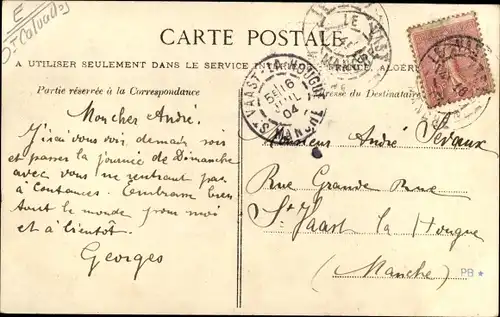 E
(St Calvados)
CARTE POSTALE
A UTILISER SEULEMENT DANS LE SERVICE INTÉRIEUR
ALGÉR
Partie réservée à la Correspondance
Adresse du Destinataire
LE VAST
MANCHE
ST VAAST-LA-HOUGUE
5E 16
JUIL
04
MANCHE
LE VAST
Mon cher André.
J'irai vous voir demain soir
et passer la journée de Dimanche
avec vous ne rentrant pas
à Coutances. Embrasse bien
tout le monde pour moi
et à bientôt.
Georges
Monsieur André
Rue Grande Rue
St Vaast la Hougue
(Manche)
PB